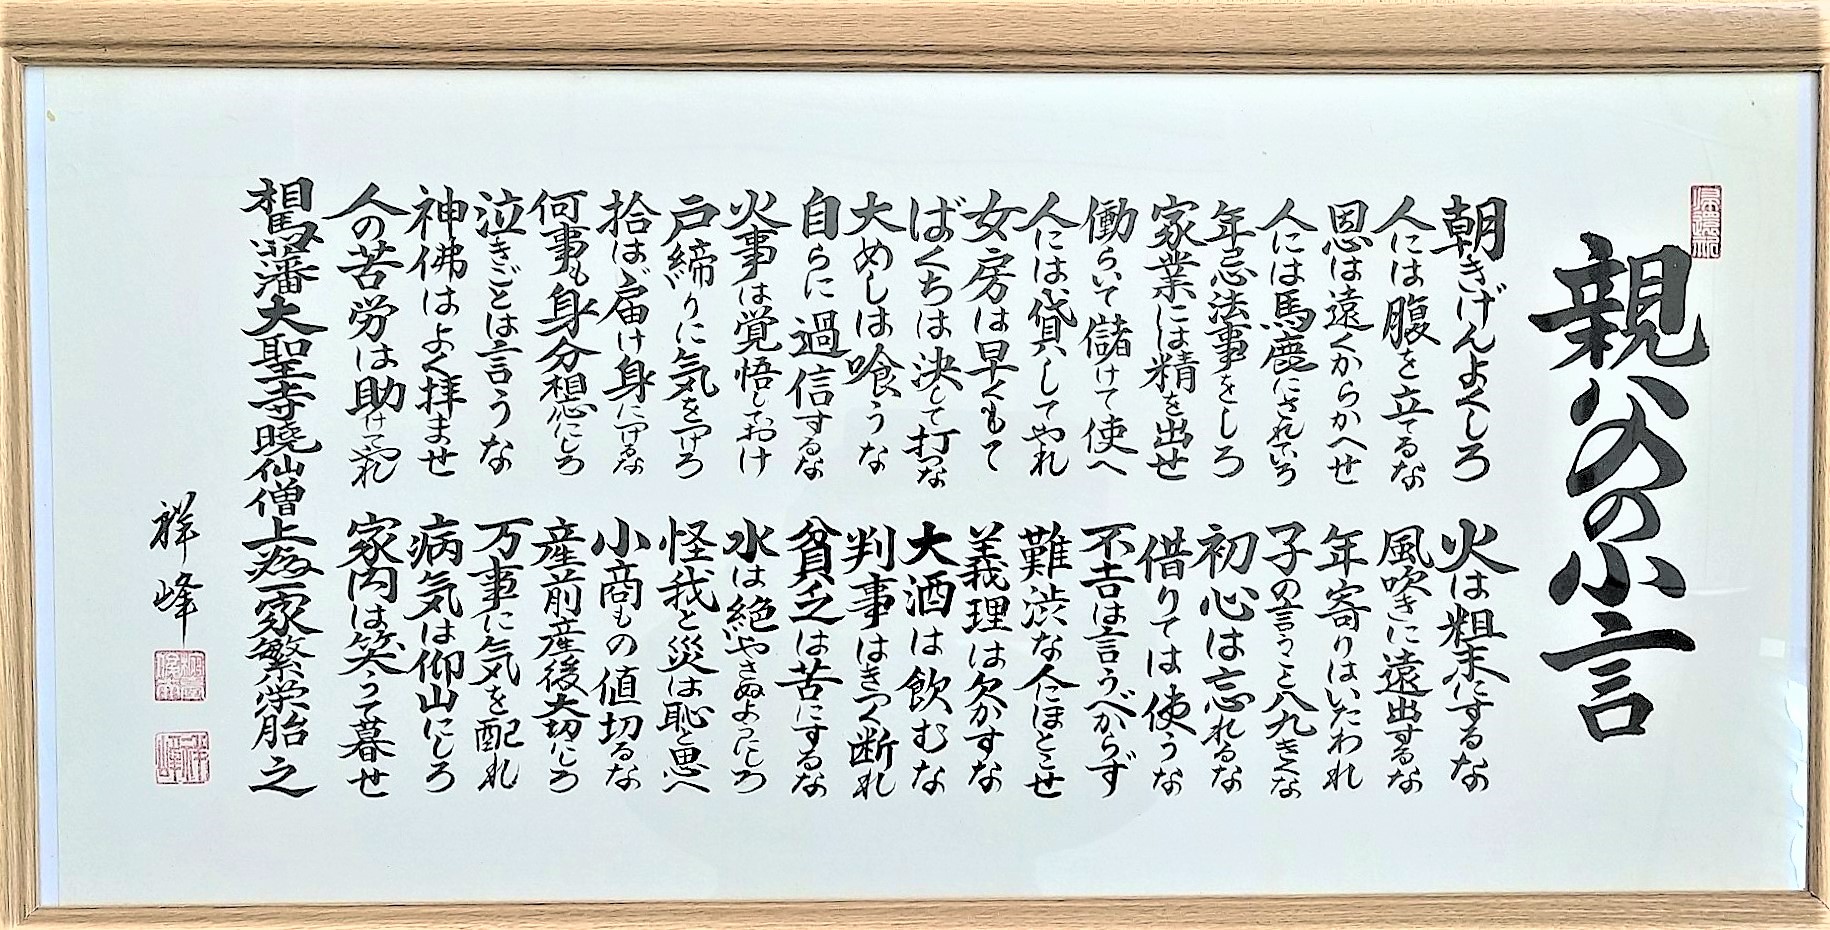 親父の小言
朝きげんよくしろ 火は粗末にするな
人には腹を立てるな 風吹きに遠出するな
恩は遠くからかへせ 年寄りはいたわれ
人には馬鹿にされていろ 子の言うこと八九きくな
年忌法事をしろ 初心は忘れるな
家業には精を出せ 借りては使うな
働らいて儲けて使へ 不吉は言うべからず
人には貸してやれ 難渋な人にほどこせ
女房は早くもて 義理は欠かすな
ばくちは決して打つな 大酒は飲むな
大めしは喰うな 判事はきつく断れ
自らに過信するな 貧乏は苦にするな
火事は覚悟しておけ 水は絶やさぬようにしろ
戸締りに気をつけろ 怪我と災は恥と思へ
拾はゞ届け身につけるな 小商もの値切るな
何事も身分想応にしろ 産前産後大切にしろ
泣きごとは言うな 万事に気を配れ
神佛はよく拝ませ 病気は仰山にしろ
人の苦労は助けてやれ 家内は笑うて暮せ
相馬藩大聖寺暁仙僧上為一家繁栄胎之
祥峰